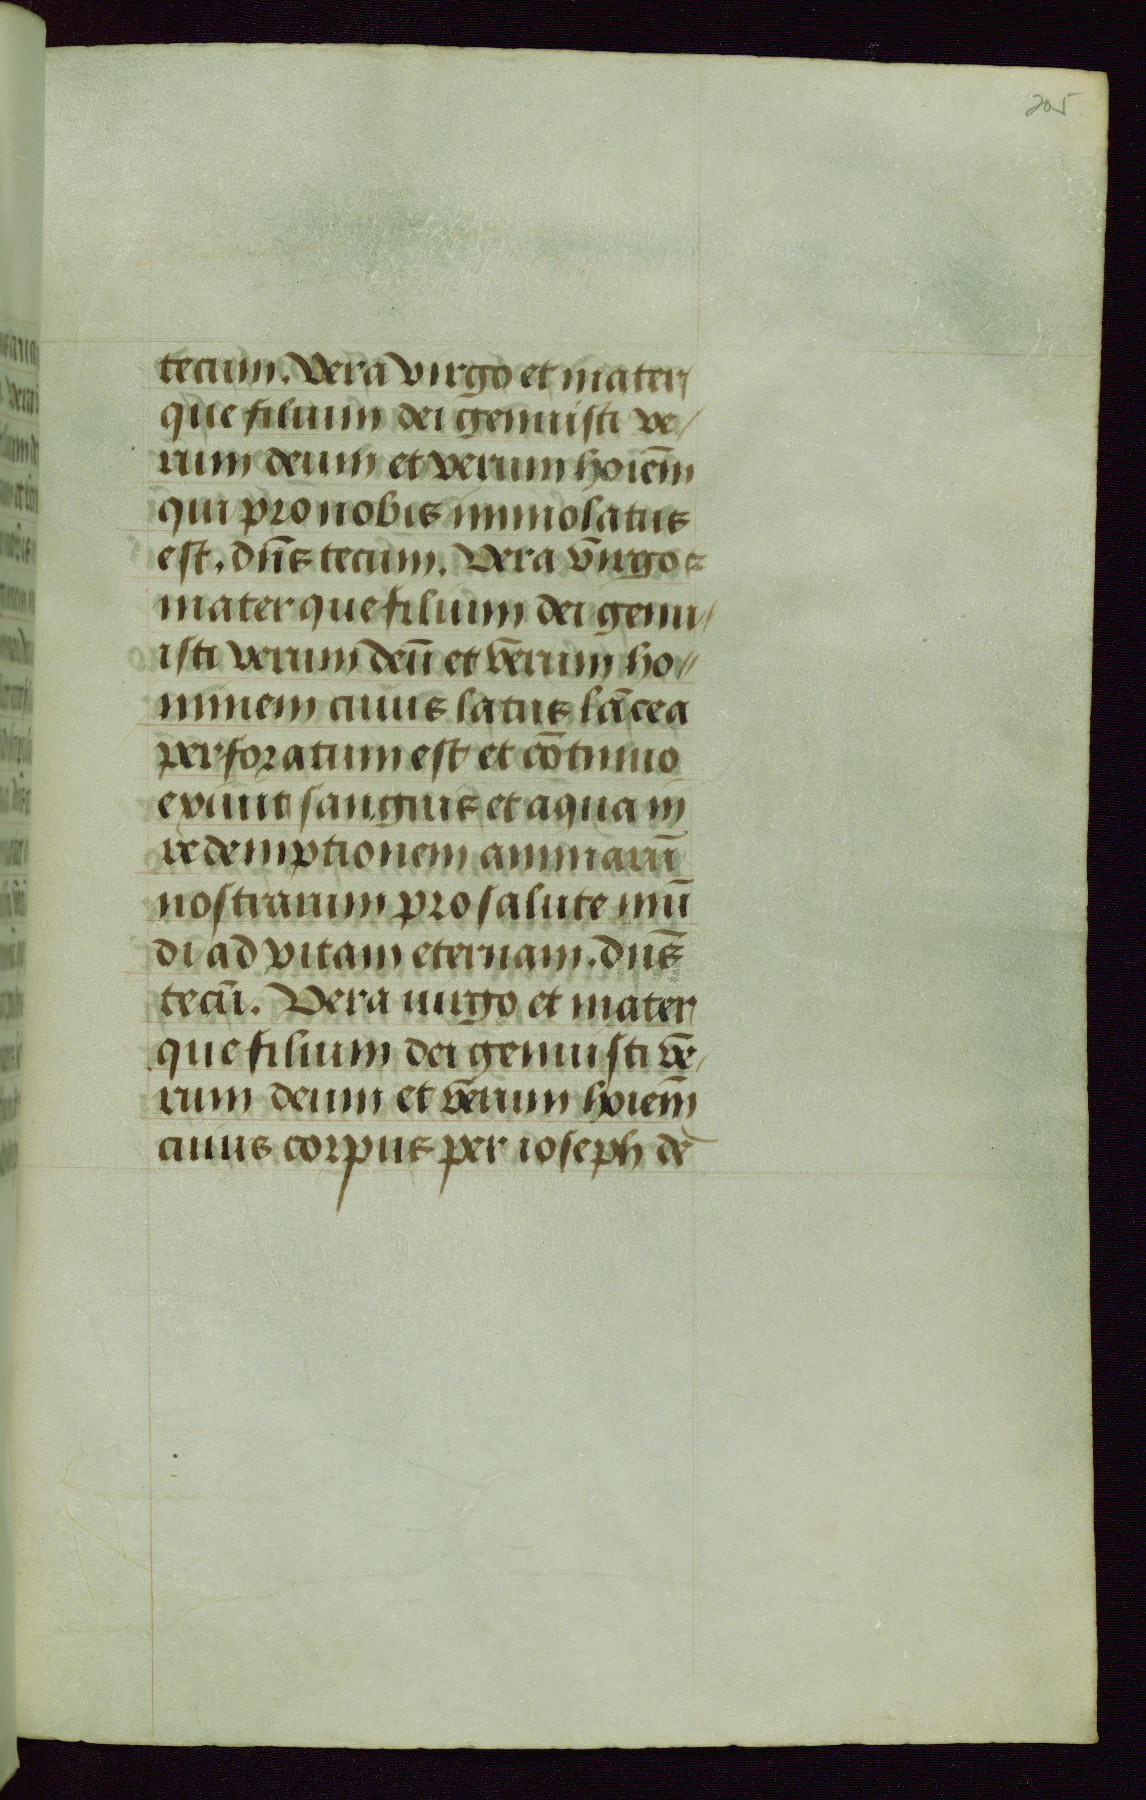 205
tecum. Vera virgo et mater
que filium dei genuisti ve/
rum deum et verum hoiem̄
qui pro nobis immolatus
est. dn̄s tecum. Vera v̄irgo ⁊
mater que filium dei genu/
isti verum deū et v̄erum ho//
minem cuius latus lācea
perforatum est et cōtinuo
exiuit sanguis et aqua in
redemptionem animarū
nostrarum pro salute mū
di ad vitam eternam. dn̄s
tecū. Vera uirgo et mater
que filium dei genuisti v̄e/
rum deum et v̄erum hoiem̄
cuius corpus per ioseph de